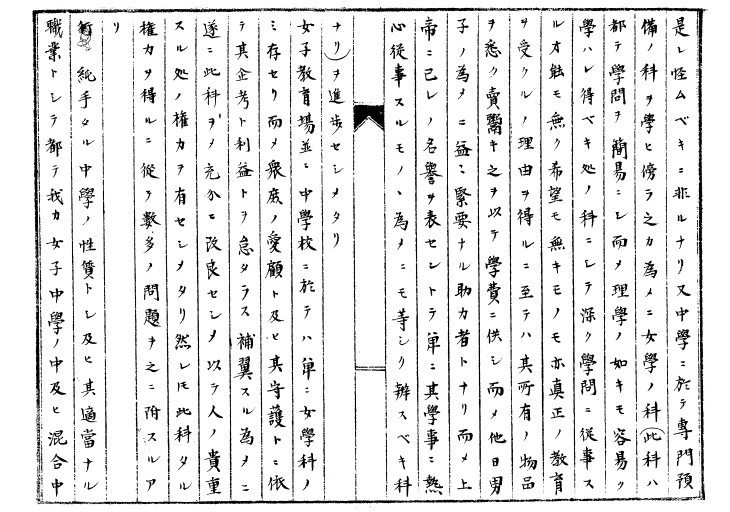 是レ怪ムベキニ非ルナリ又中學ニ於テ專門預
備ノ科ヲ學ヒ傍ラ之カ為メニ女學ノ科(此科ハ
都テ學問ヲ簡易ニシ而メ理學ノ如キモ容易ク
學ハレ得ベキ処ノ科ニシテ深ク學問ニ從事ス
ル才能モ無ク希望モ無キモノモ亦真正ノ教育
ヲ受クルノ理由ヲ得ルニ至テハ其所有ノ物品
ヲ悉ク賣鬻キ之ヲ以テ學費ニ供シ而メ他日男
子ノ為メニ益々緊要ナル助力者トナリ而メ上
帝ニ己レノ名譽ヲ表セントテ單ニ其學事ニ熱
心從事スルモノヽ為メニモ等シク辨スベキ科
ナリ)ヲ進歩セシメタリ
女子教育場並ニ中學校ニ於テハ單ニ女學科ノ
ミ存セリ而メ衆庶ノ愛顧ト及ヒ其守護トニ依
テ其企考ト利益トヲ怠タラス補翼スル為メニ
遂ニ此科ヲメ充分ニ改良セシメ以テ人ノ貴重
スル処ノ權力ヲ有セシメタリ然レ𪜈此科タル
權力ヲ得ルニ從テ數多ノ問題ヲ之ニ附スルア
リ
純乎タル中學ノ性質トレ及ヒ其適當ナル
職業トシテ都テ我カ女子中學ノ中及ヒ混合中